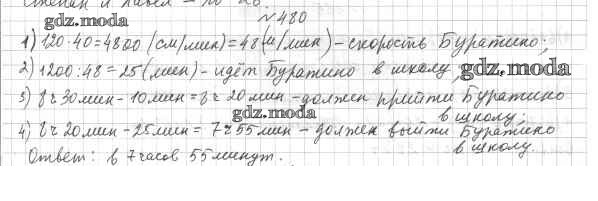 Степан и Павел – по 26.
№480
gdz.moda
1) 120·40=4800 (см/мин)=48(м/мин) – скорость Буратино;
2) 1200:48=25(мин) – идёт Буратино в школу;
gdz.moda
3) 8ч30мин – 10мин = 8ч 20мин – должен прийти Буратино
в школу;
gdz.moda
4) 8ч 20мин – 25мин = 7ч 55мин – должен выйти Буратино
в школу.
Ответ: в 7 часов 55 минут.
gdz.moda